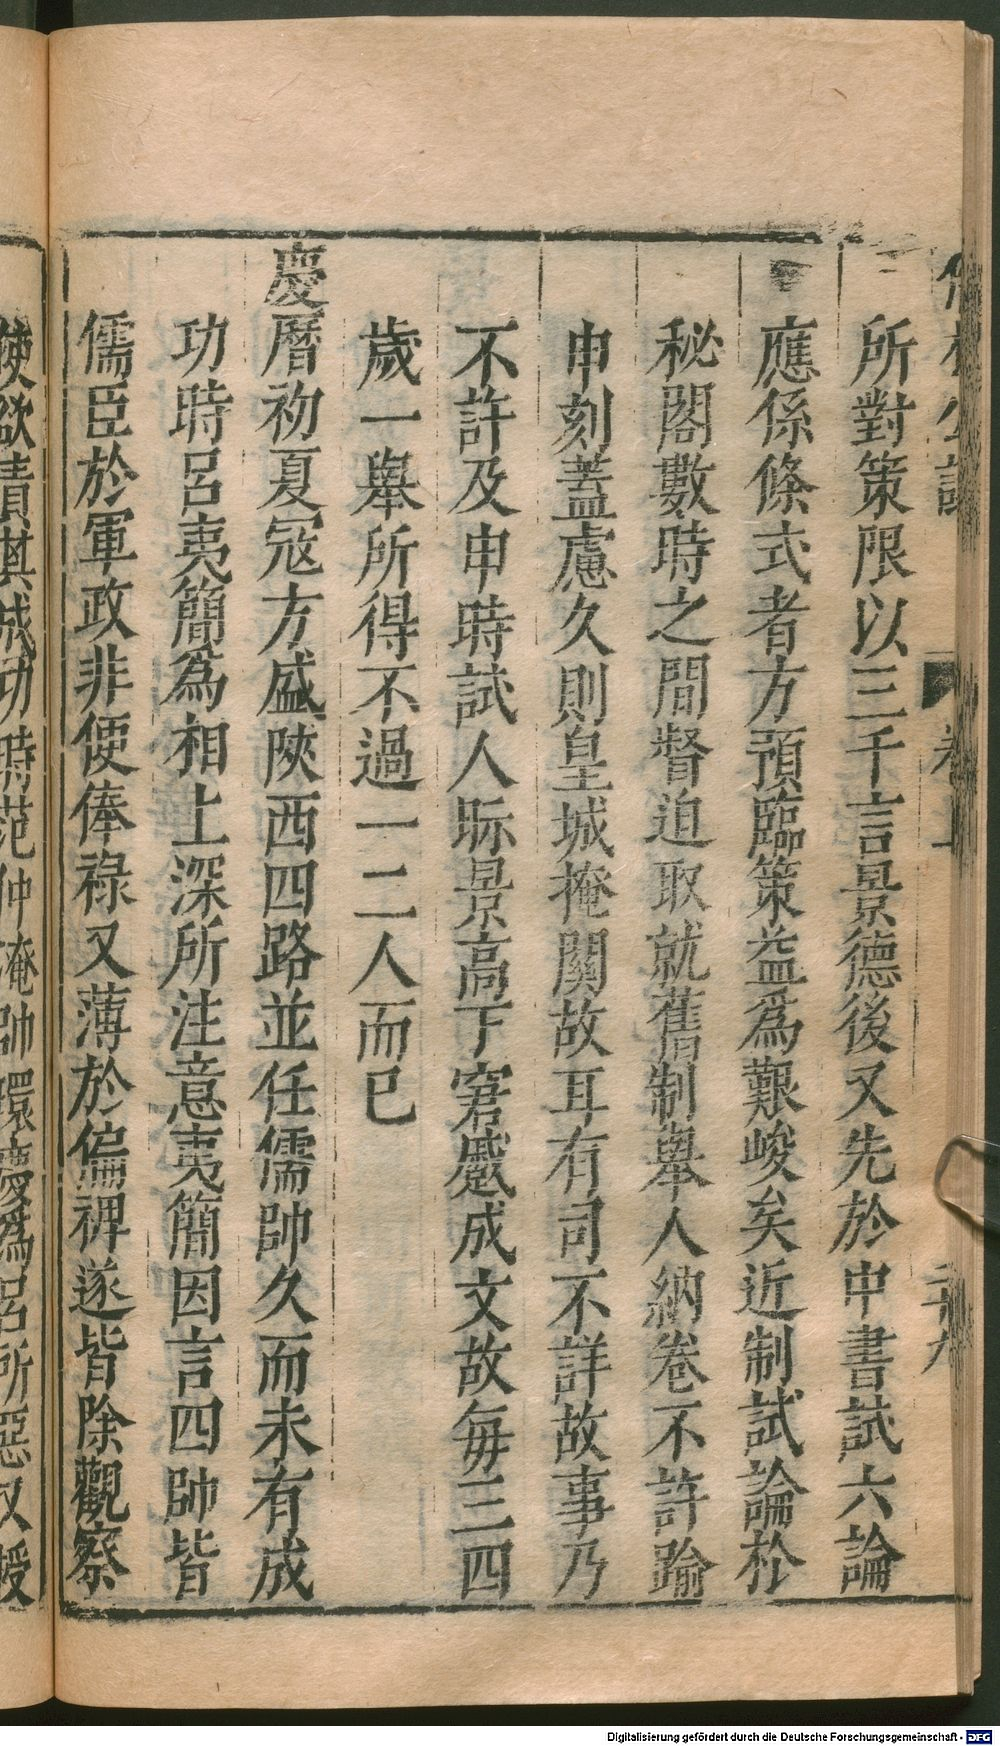 所對策限以三千言景德後又先於中書試六論
應係條式者方預臨策益爲艱峻矣近制試論於
秘閣數時之間督迫取就舊制舉人納卷不許踰
申刻蓋慮久則皇城掩關故耳有司不詳故事乃
不許及申時試人眎景高下窘蹙成文故每三四
歲一舉所得不過一二人而已
慶曆初夏冦方盛陝西四路並任儒帥久而未有成
功時呂夷簡爲相上深所注意夷簡因言四帥皆
儒臣於軍政非便俸祿又薄於偏裨遂皆除觀察
使欲責其成功時范仲淹帥環慶爲呂所惡又授
Digitalisierung gefördert durch die Deutsche Forschungsgemeinschaft - DFG